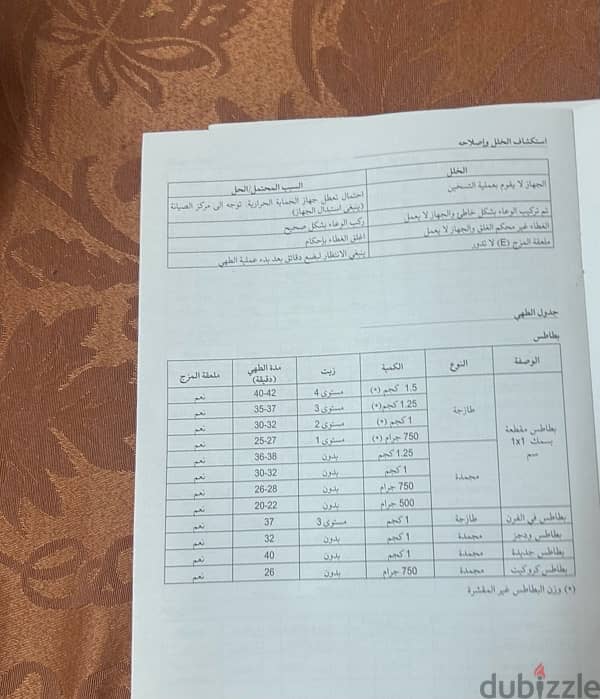 استكشاف الخلل وإصلاحه
الخلل السبب المحتمل/الحل
الجهاز لا يقوم بعملية التسخين احتمال تعطل جهاز الحماية الحرارية، توجه الى مركز الصيانة
(ينبغي استبدال الجهاز)
تم تركيب الوعاء بشكل خاطئ والجهاز لا يعمل ركب الوعاء بشكل صحيح
الغطاء غير محكم الغلق والجهاز لا يعمل اغلق الغطاء بإحكام
ملعقة المزج (E) لا تدور ينبغي الانتظار لبضع دقائق بعد بدء عملية الطهي
جدول الطهي
بطاطس
الوصفة النوع الكمية زيت مدة الطهي (دقيقة) ملعقة المزج
بطاطس مقطعة بسمك 1x1 سم طازجة 1.5 كجم (*) مستوى 4 40-42 نعم
1.25 كجم(*) مستوى 3 35-37 نعم
1 كجم (*) مستوى 2 30-32 نعم
750 جرام (*) مستوى 1 25-27 نعم
مجمدة 1.25 كجم بدون 36-38 نعم
1 كجم بدون 30-32 نعم
750 جرام بدون 26-28 نعم
500 جرام بدون 20-22 نعم
بطاطس في الفرن طازجة 1 كجم مستوى 3 37 نعم
بطاطس ودجز مجمدة 1 كجم بدون 32 نعم
بطاطس جديدة مجمدة 1 كجم بدون 40 نعم
بطاطس كروكيت مجمدة 750 جرام بدون 26 نعم
(*) وزن البطاطس غير المقشرة
dubizzle